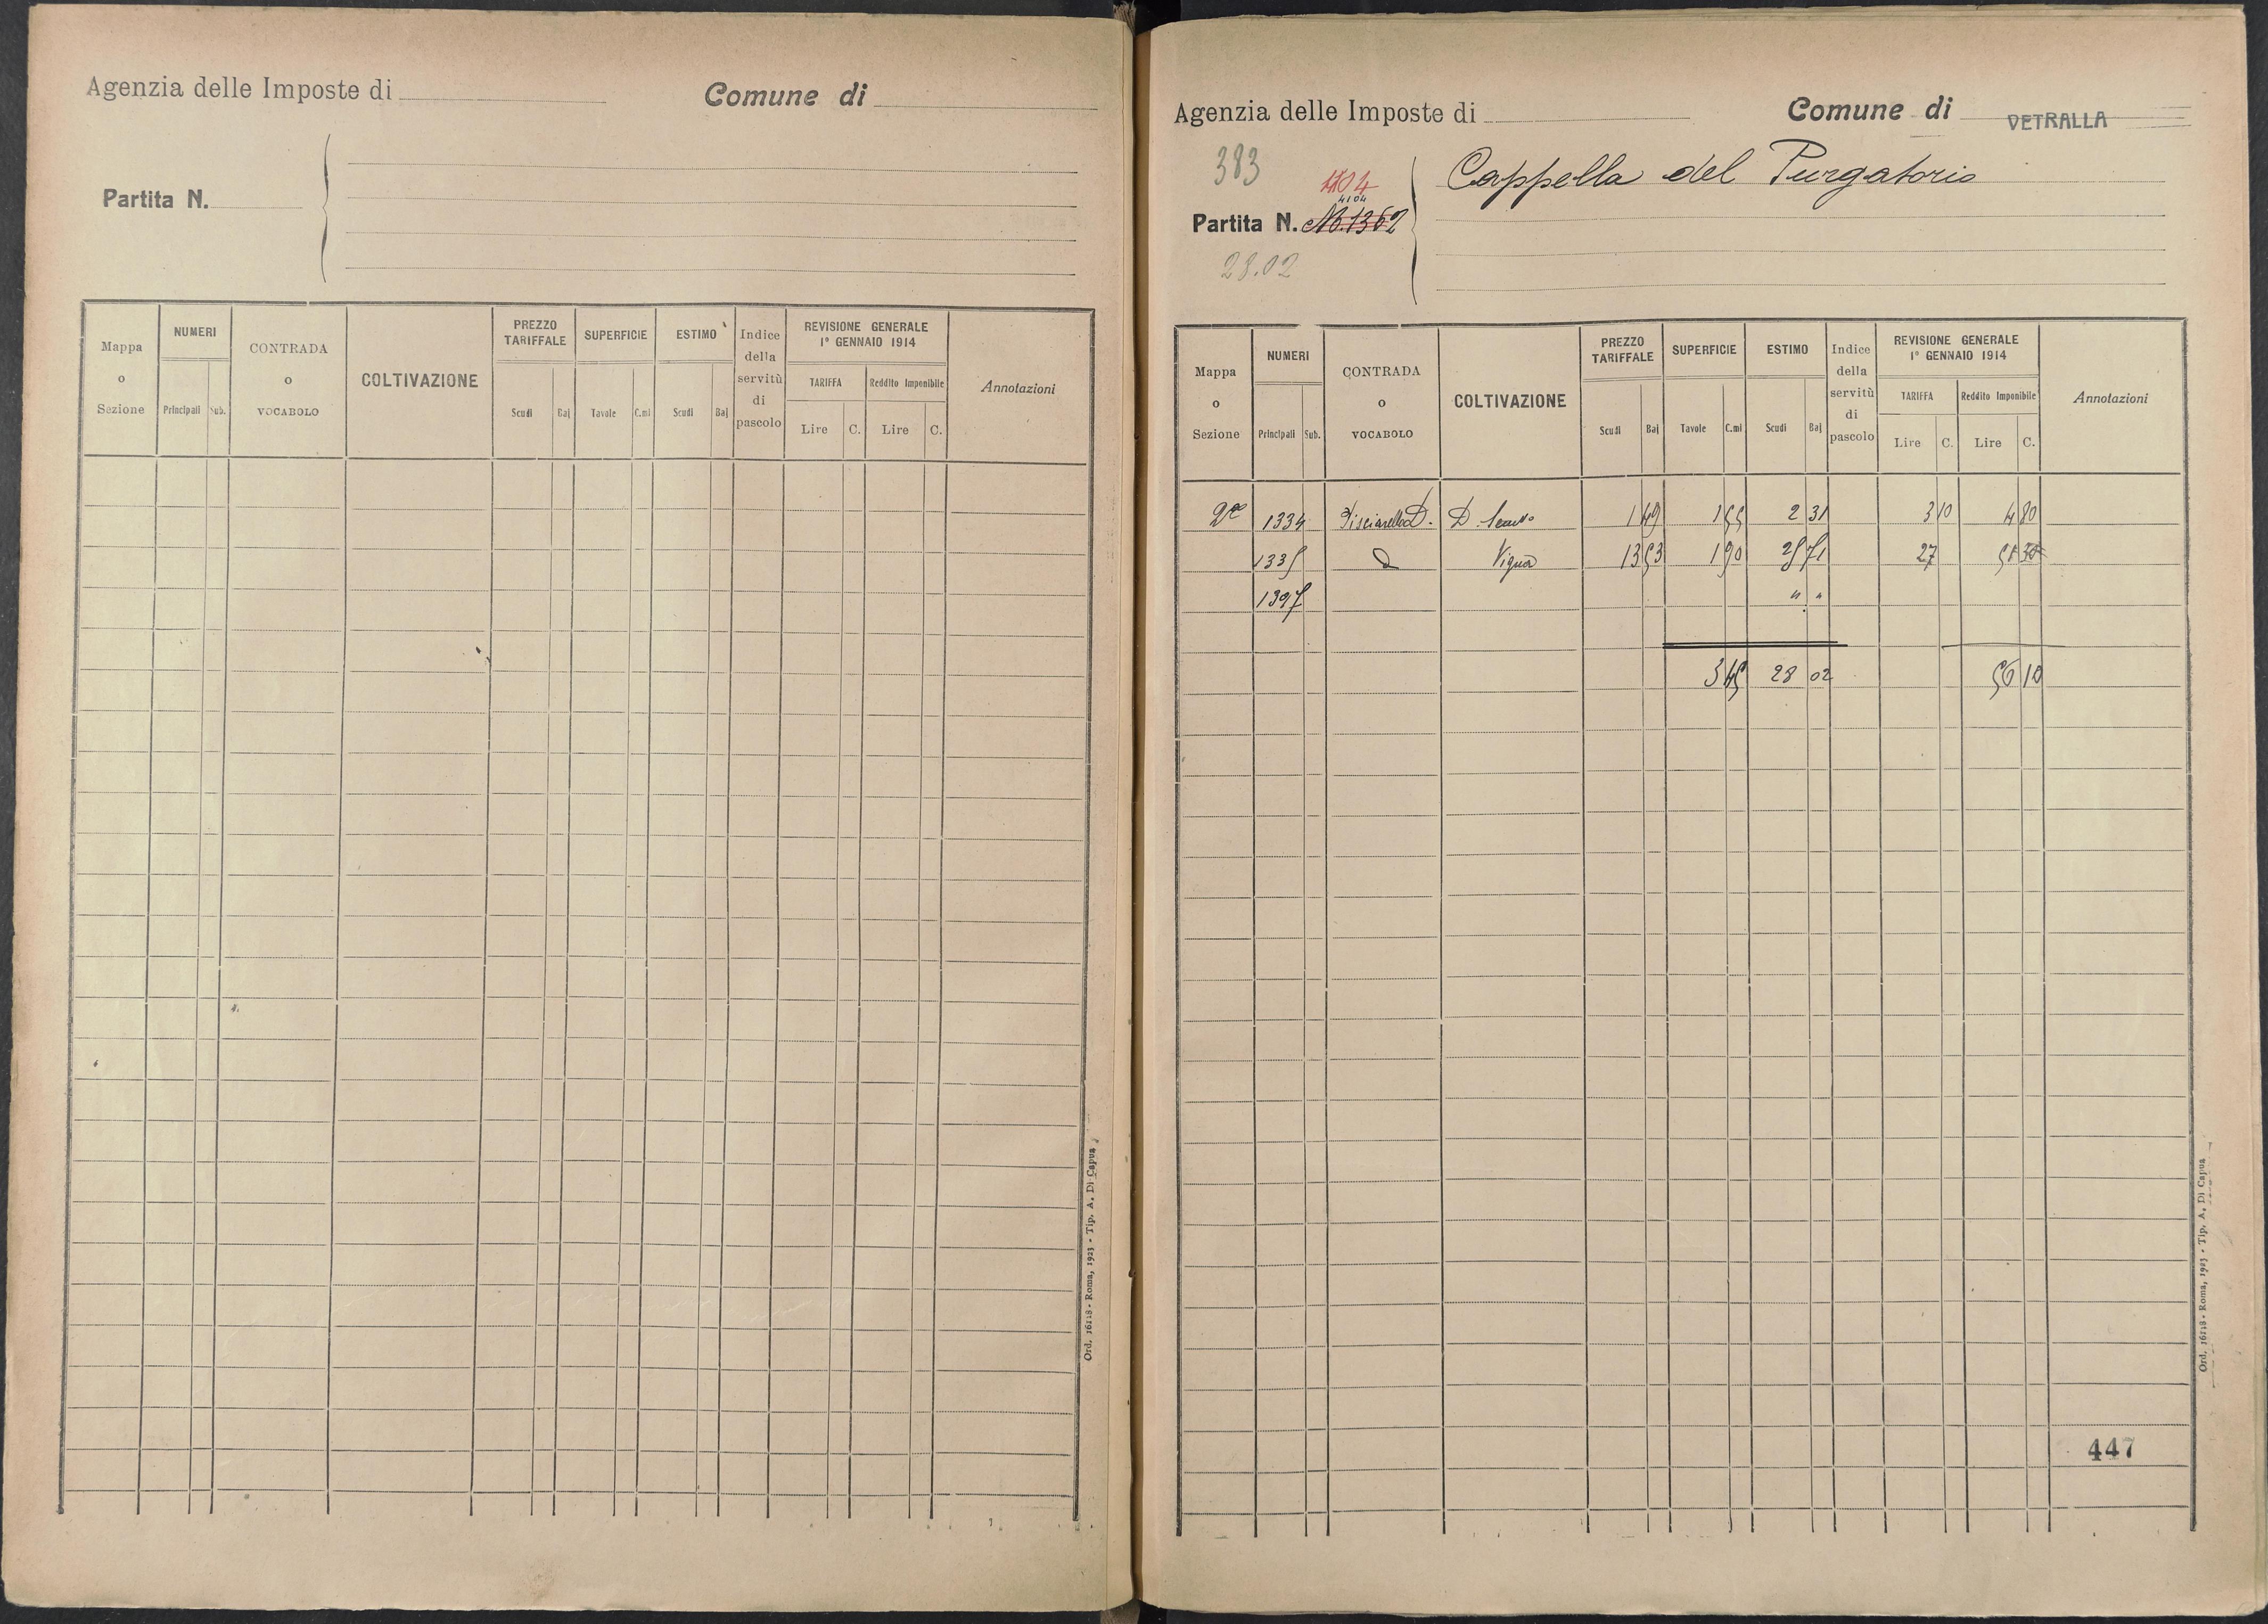 Agenzia delle Imposte di
Comune di
Partita N.
Mappa o Sezione
NUMERI
Principali Sub.
CONTRADA o VOCABOLO
COLTIVAZIONE
PREZZO TARIFFALE
Scudi Baj
SUPERFICIE
Tavole C.mi
ESTIMO
Scudi Baj
Indice della servitù di pascolo
REVISIONE GENERALE 1° GENNAIO 1914
TARIFFA Reddito Imponibile
Lire C. Lire C.
Annotazioni
Ord. 16118 - Roma, 1923 - Tip. A. Di Capua
Agenzia delle Imposte di
Comune di VETRALLA
383
4104
4104
Partita N. No. 1362
28.02
Cappella del Purgatorio
Mappa o Sezione
NUMERI
Principali Sub.
CONTRADA o VOCABOLO
COLTIVAZIONE
PREZZO TARIFFALE
Scudi Baj
SUPERFICIE
Tavole C.mi
ESTIMO
Scudi Baj
Indice della servitù di pascolo
REVISIONE GENERALE 1° GENNAIO 1914
TARIFFA Reddito Imponibile
Lire C. Lire C.
Annotazioni
1334 D. 1 49 1 55 2 31 3 10 4 80
1335 Vigna 13 53 1 90 25 71 27 51 30
1397 " "
3 45 28 02 56 10
447
Ord. 16118 - Roma, 1923 - Tip. A. Di Capua